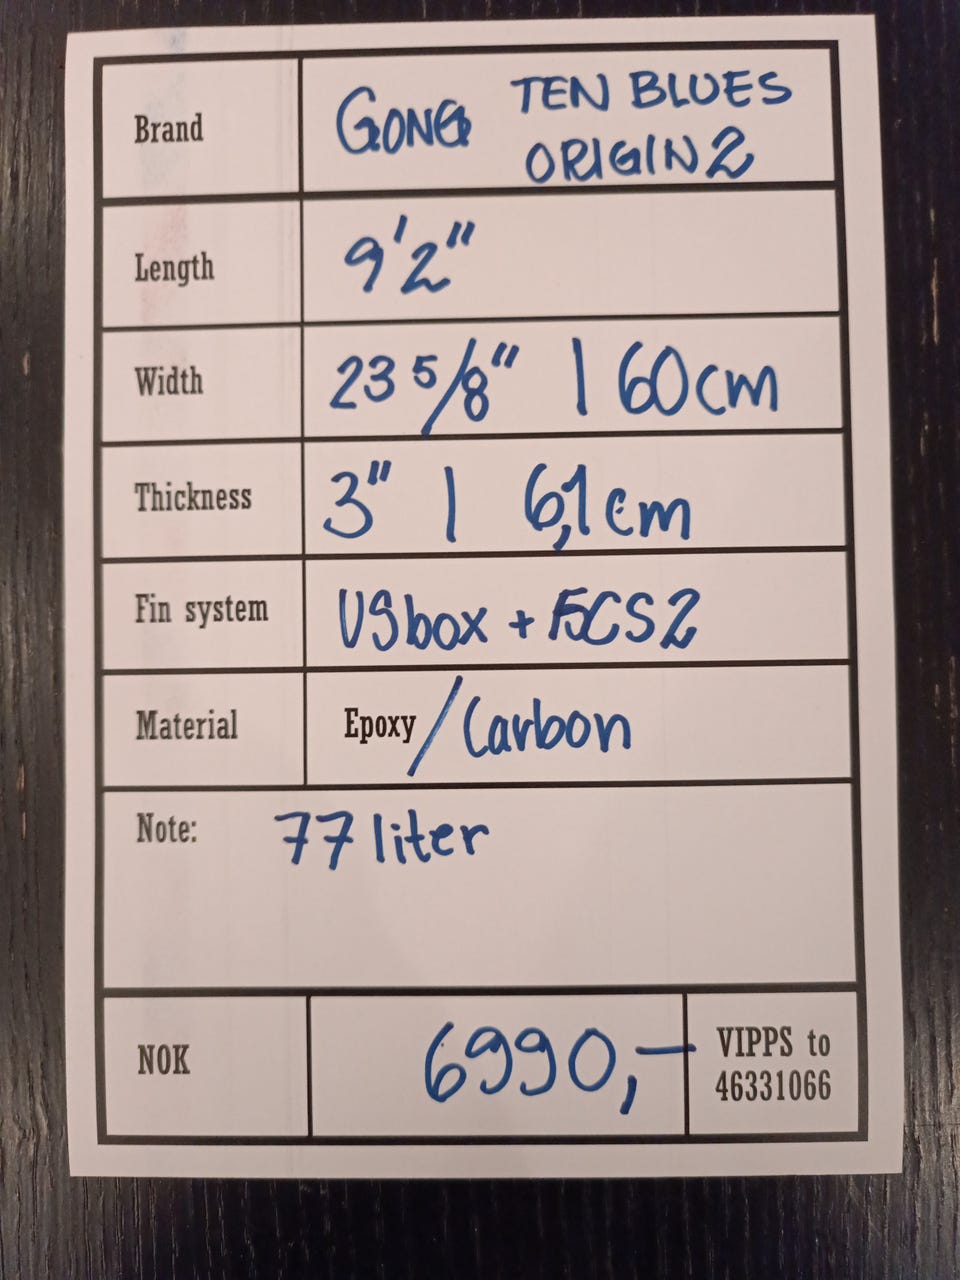 Brand GONG TEN BLUES
ORIGIN 2
Length 9'2"
Width 23 5/8" | 60cm
Thickness 3" | 6,1 cm
Fin system USbox + FCS2
Material Epoxy / Carbon
Note: 77 liter
NOK 6990,- VIPPS to
46331066